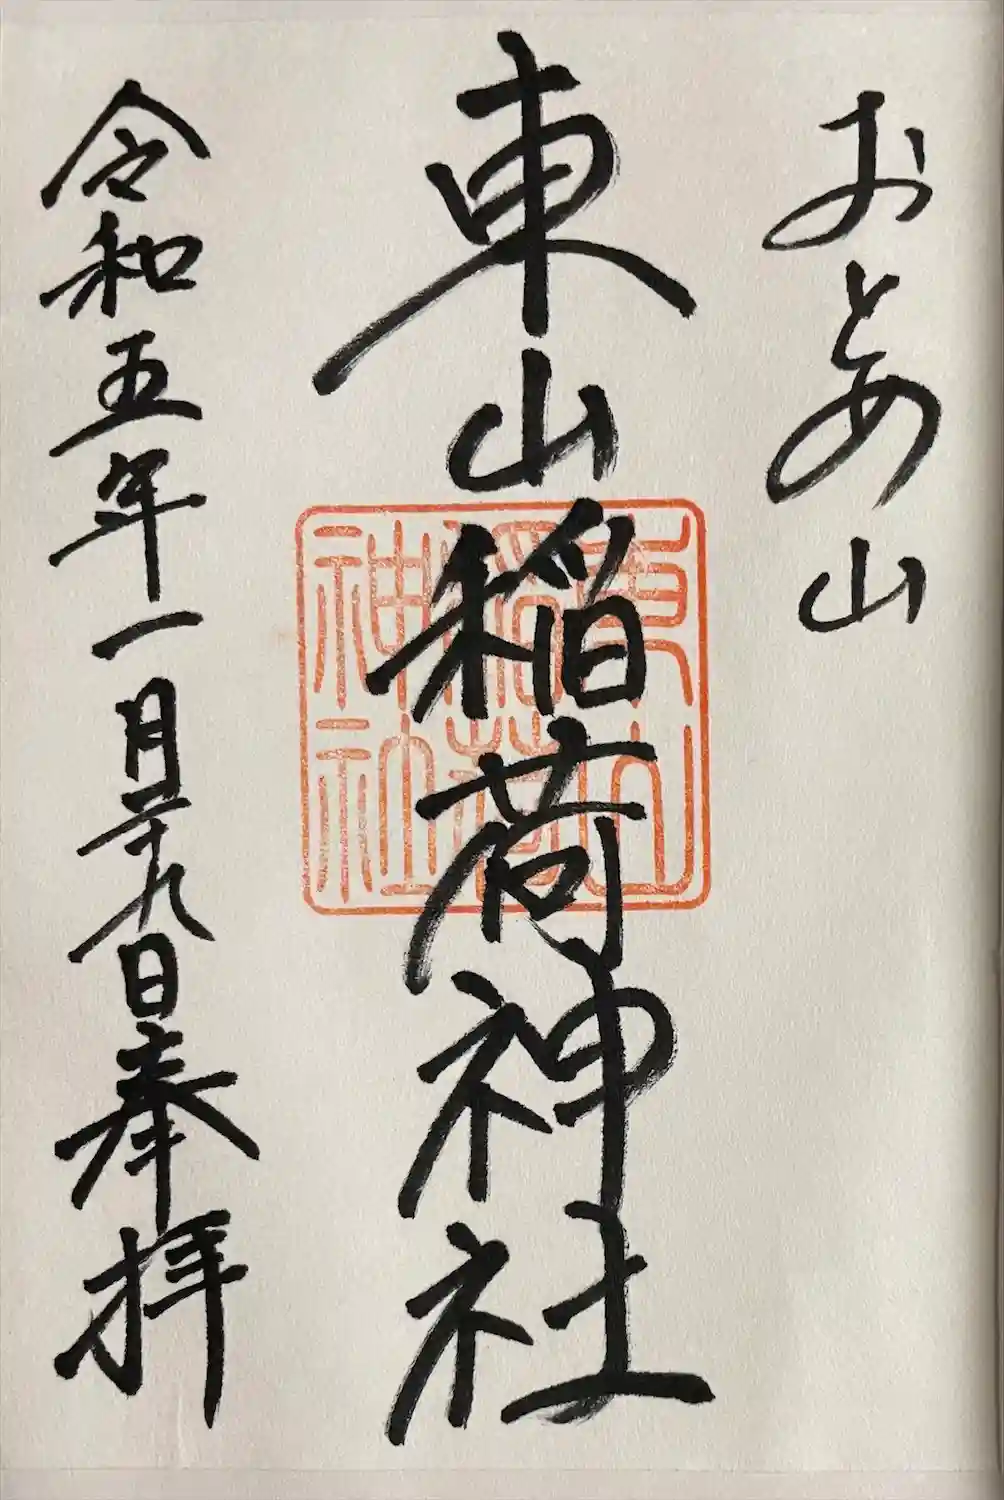 おとめ山
東山稲荷神社
東山
稲荷
神社
令和五年一月二十九日奉拝